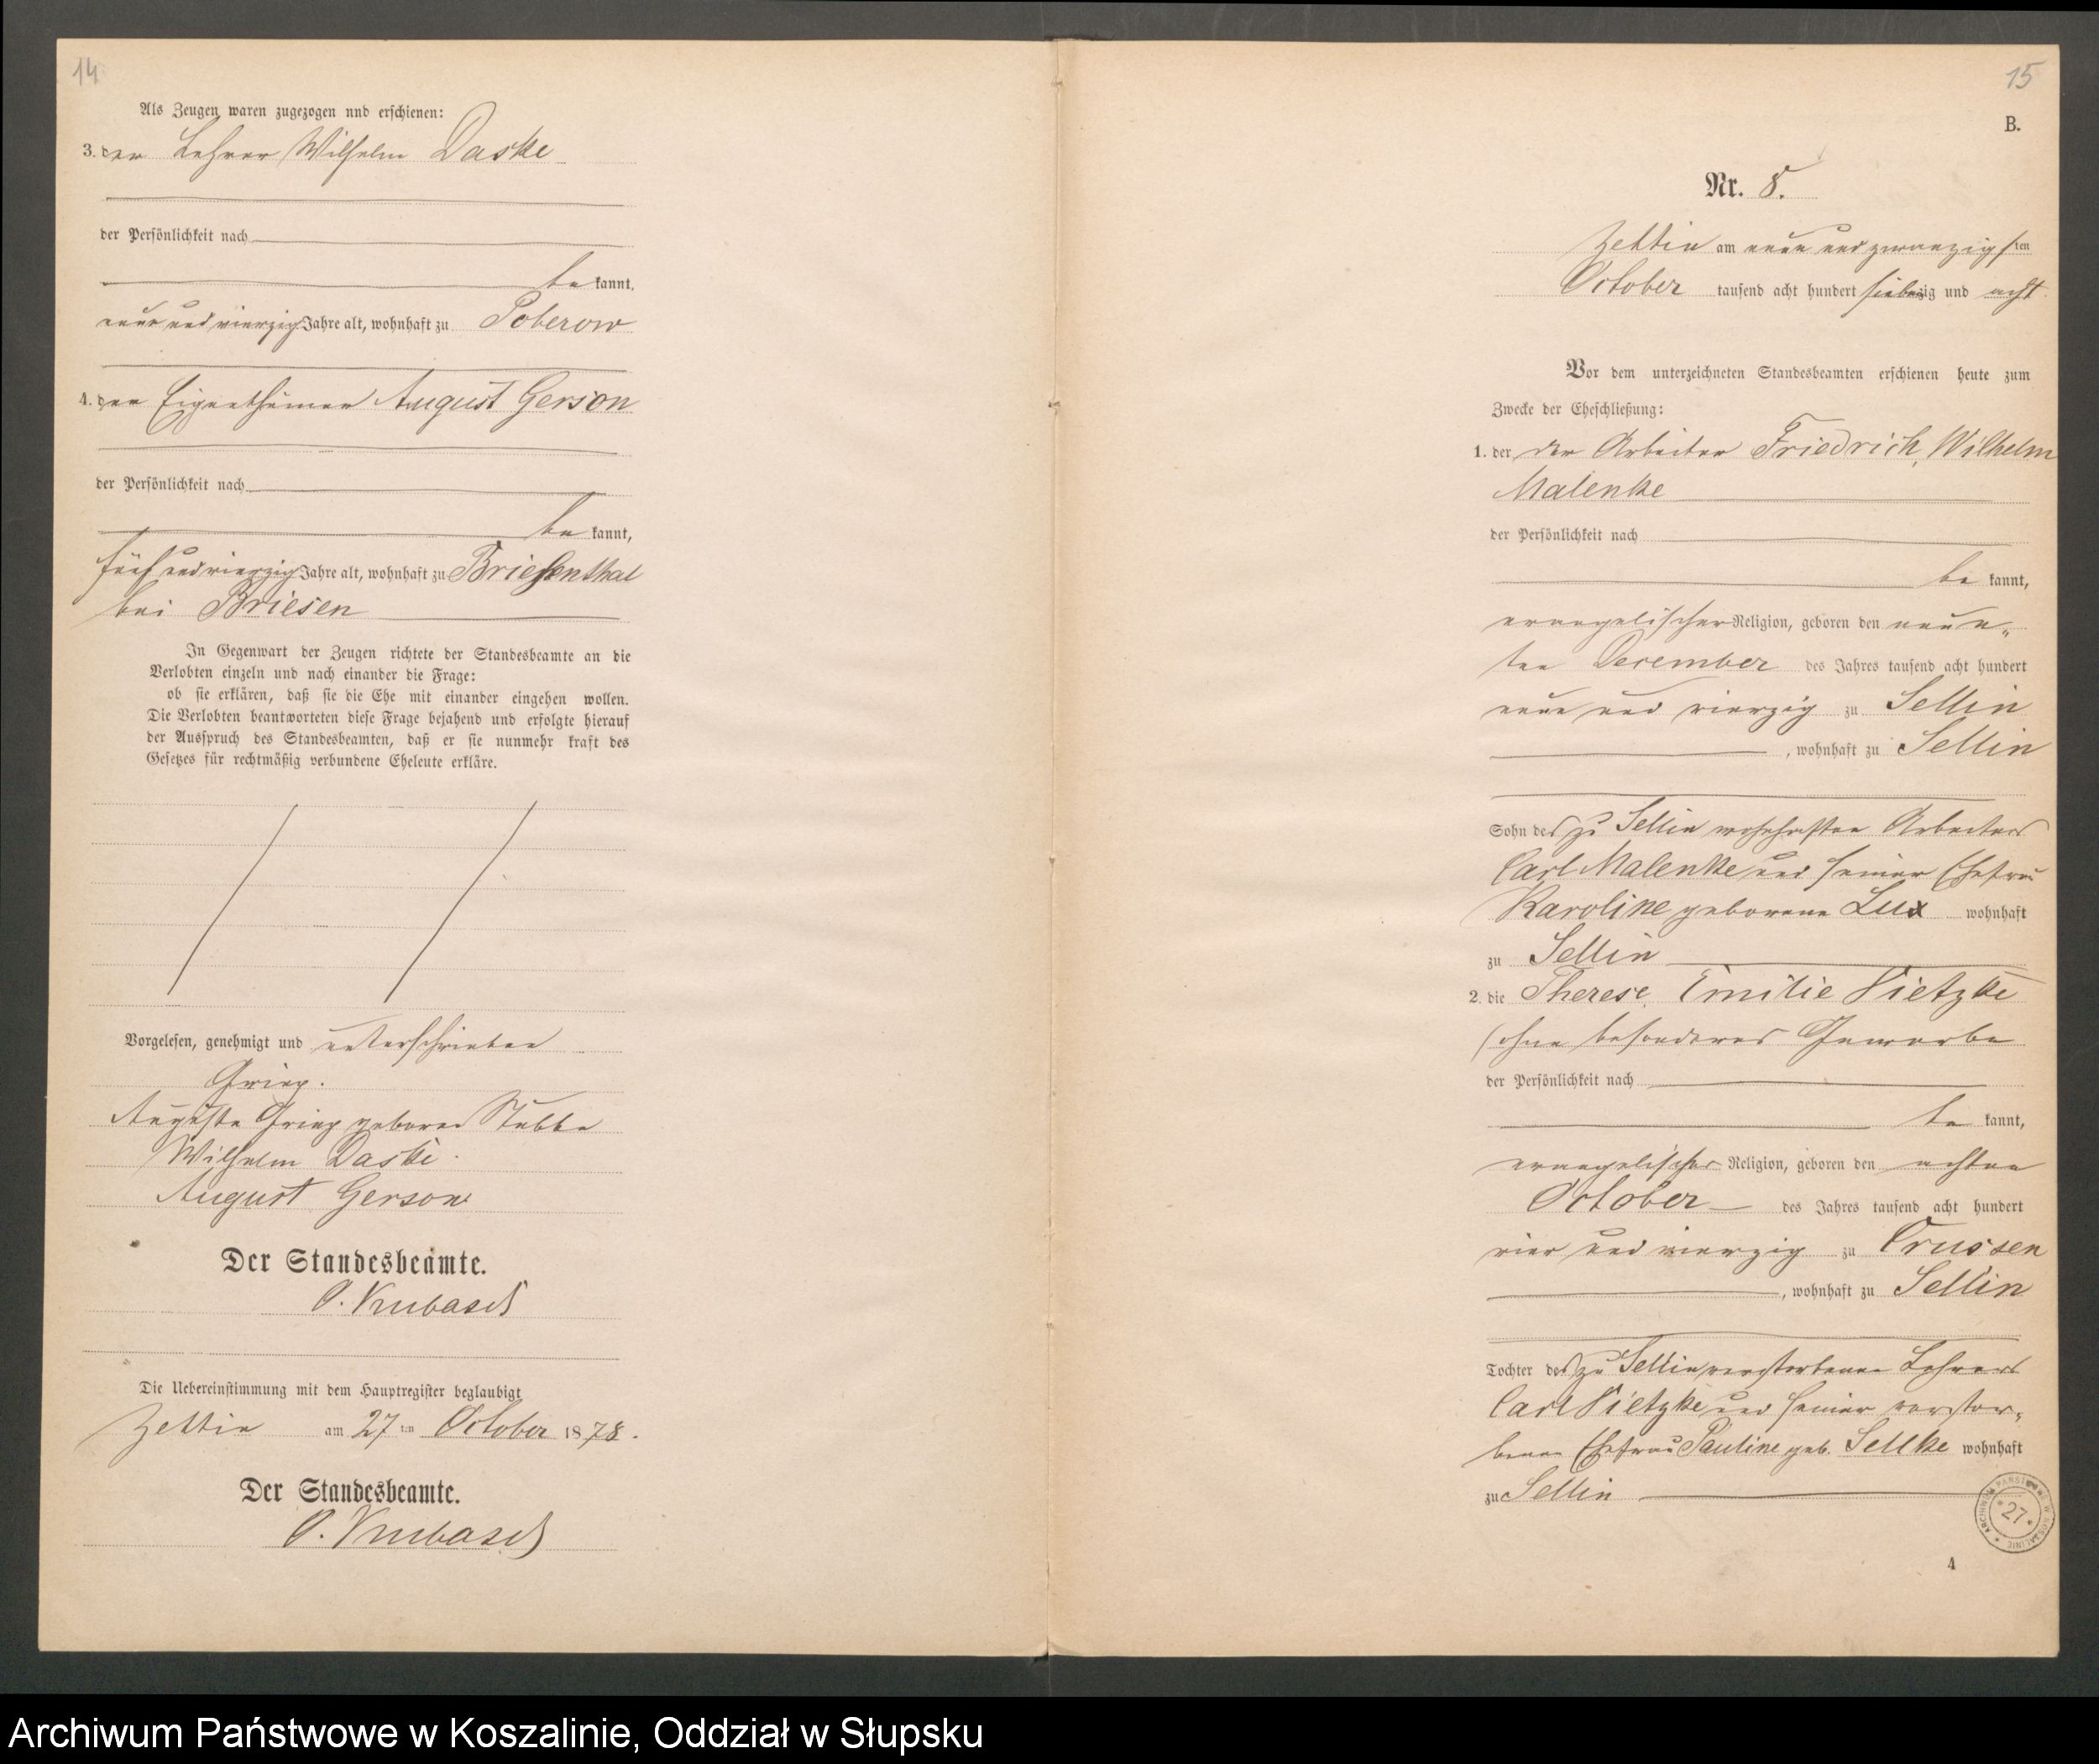 14
Als Zeugen waren zugezogen nnd erschienen:
3. der Lehrer Wilhelm Daske
der Persönlichkeit nach
be kannt,
neun und vierzig Jahre alt, wohnhaft zu Poberow
4. der Eigenthümer August Gerson
der Persönlichkeit nach
be kannt,
fünf und vierzig Jahre alt, wohnhaft zu Briesenthal
bei Briesen
In Gegenwart der Zeugen richtete der Standesbeamte an die
Verlobten einzeln und nach einander die Frage:
ob sie erklären, daß sie die Ehe mit einander eingehen wollen.
Die Verlobten beantworteten diese Frage bejahend und erfolgte hierauf
der Ausspruch des Standesbeamten, daß er sie nunmehr kraft des
Gesetzes für rechtmäßig verbundene Eheleute erkläre.
Vorgelesen, genehmigt und unterschrieben
Griep.
Auguste Griep geboren Stubbe
Wilhelm Daske.
August Gerson
Der Standesbeamte.
Die Uebereinstimmung mit dem Hauptregister beglaubigt
Zettin am 27 ten October 1878.
Der Standesbeamte.
15
B.
Nr. 8.
Zettin am neun und zwanzigsten
October tausend acht hundert siebenzig und acht
Vor dem unterzeichneten Standesbeamten erschienen heute zum
Zwecke der Eheschließung:
1. der der Arbeiter Friedrich, Wilhelm
Malenke
der Persönlichkeit nach
be kannt,
evangelischer Religion, geboren den neun-
ten December des Jahres tausend acht hundert
neun und vierzig zu Sellin
, wohnhaft zu Sellin
Sohn des zu Sellin wohnhaften Arbeiters
Carl Malenke und seiner Ehefrau
Karoline geborene Lux wohnhaft
zu Sellin
2. die Therese, Emilie Vietzke
(ohne besonderes Gewerbe
der Persönlichkeit nach
be kannt,
evangelischer Religion, geboren den achten
October des Jahres tausend acht hundert
vier und vierzig zu Crussen
, wohnhaft zu Sellin
Tochter des zu Sellin verstorbenen Lehrers
Carl Vietzke und seiner verstor-
benen Ehefrau Pauline geb. Sellke wohnhaft
zu Sellin
ARCHIWUM PAŃSTWOWE W KOSZALINIE
* 27 *
4
Archiwum Państwowe w Koszalinie, Oddział w Słupsku